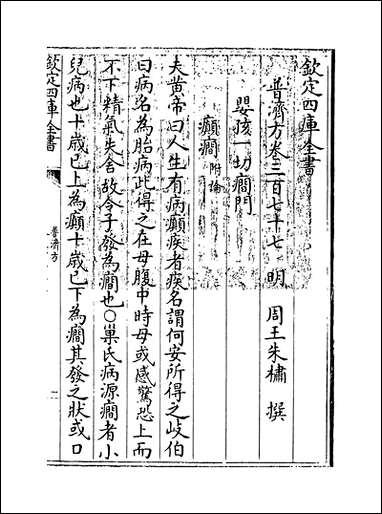 欽定四庫全書
普濟方卷三百七十七 明 周王朱橚 撰
嬰孩一切癇門
癲癇附論
夫黄帝曰人生有病癲疾者疾名謂何安所得之歧伯
曰病名為胎病此得之在母腹中時母或感驚恐上而
不下精氣失舍故令子發為癇也○巢氏病源癇者小
兒病也十歲已上為癲十歲已下為癇其發之狀或口
欽定四庫全書
普濟方